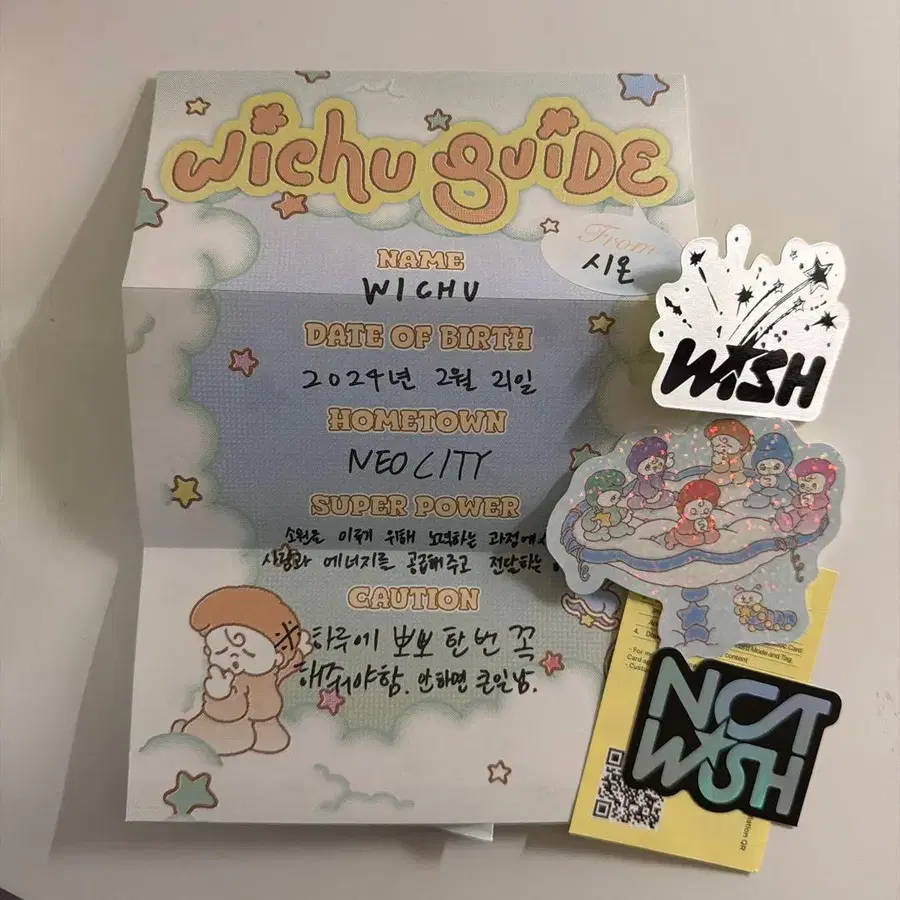 wichu guide
From
시온
NAME
WICHU
DATE OF BIRTH
2024년 2월 21일
HOMETOWN
NEO CITY
SUPER POWER
소원을 이루기 위해 노력하는 과정에
사랑과 에너지를 공급해주고 전달하는
CAUTION
※ 하루에 뽀뽀 한 번 꼭
해줘야함. 안하면 큰일남.
WISH
4.
Card
Mode and Tag
content
NCT
WISH
QR